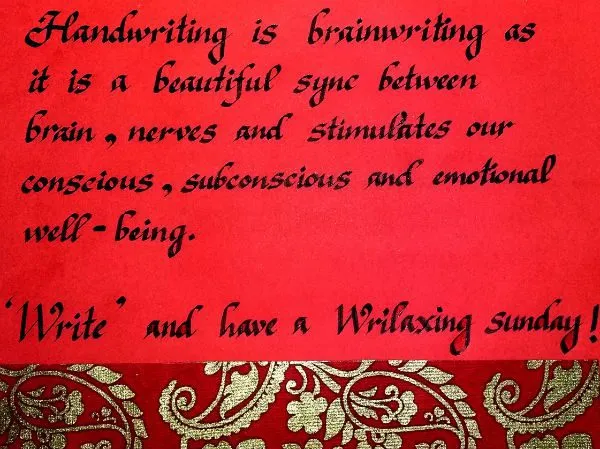 Handwriting is brainwriting as
it is a beautiful sync between
brain, nerves and stimulates our
conscious, subconscious and emotional
well-being.
'Write' and have a Wrilaxing sunday!